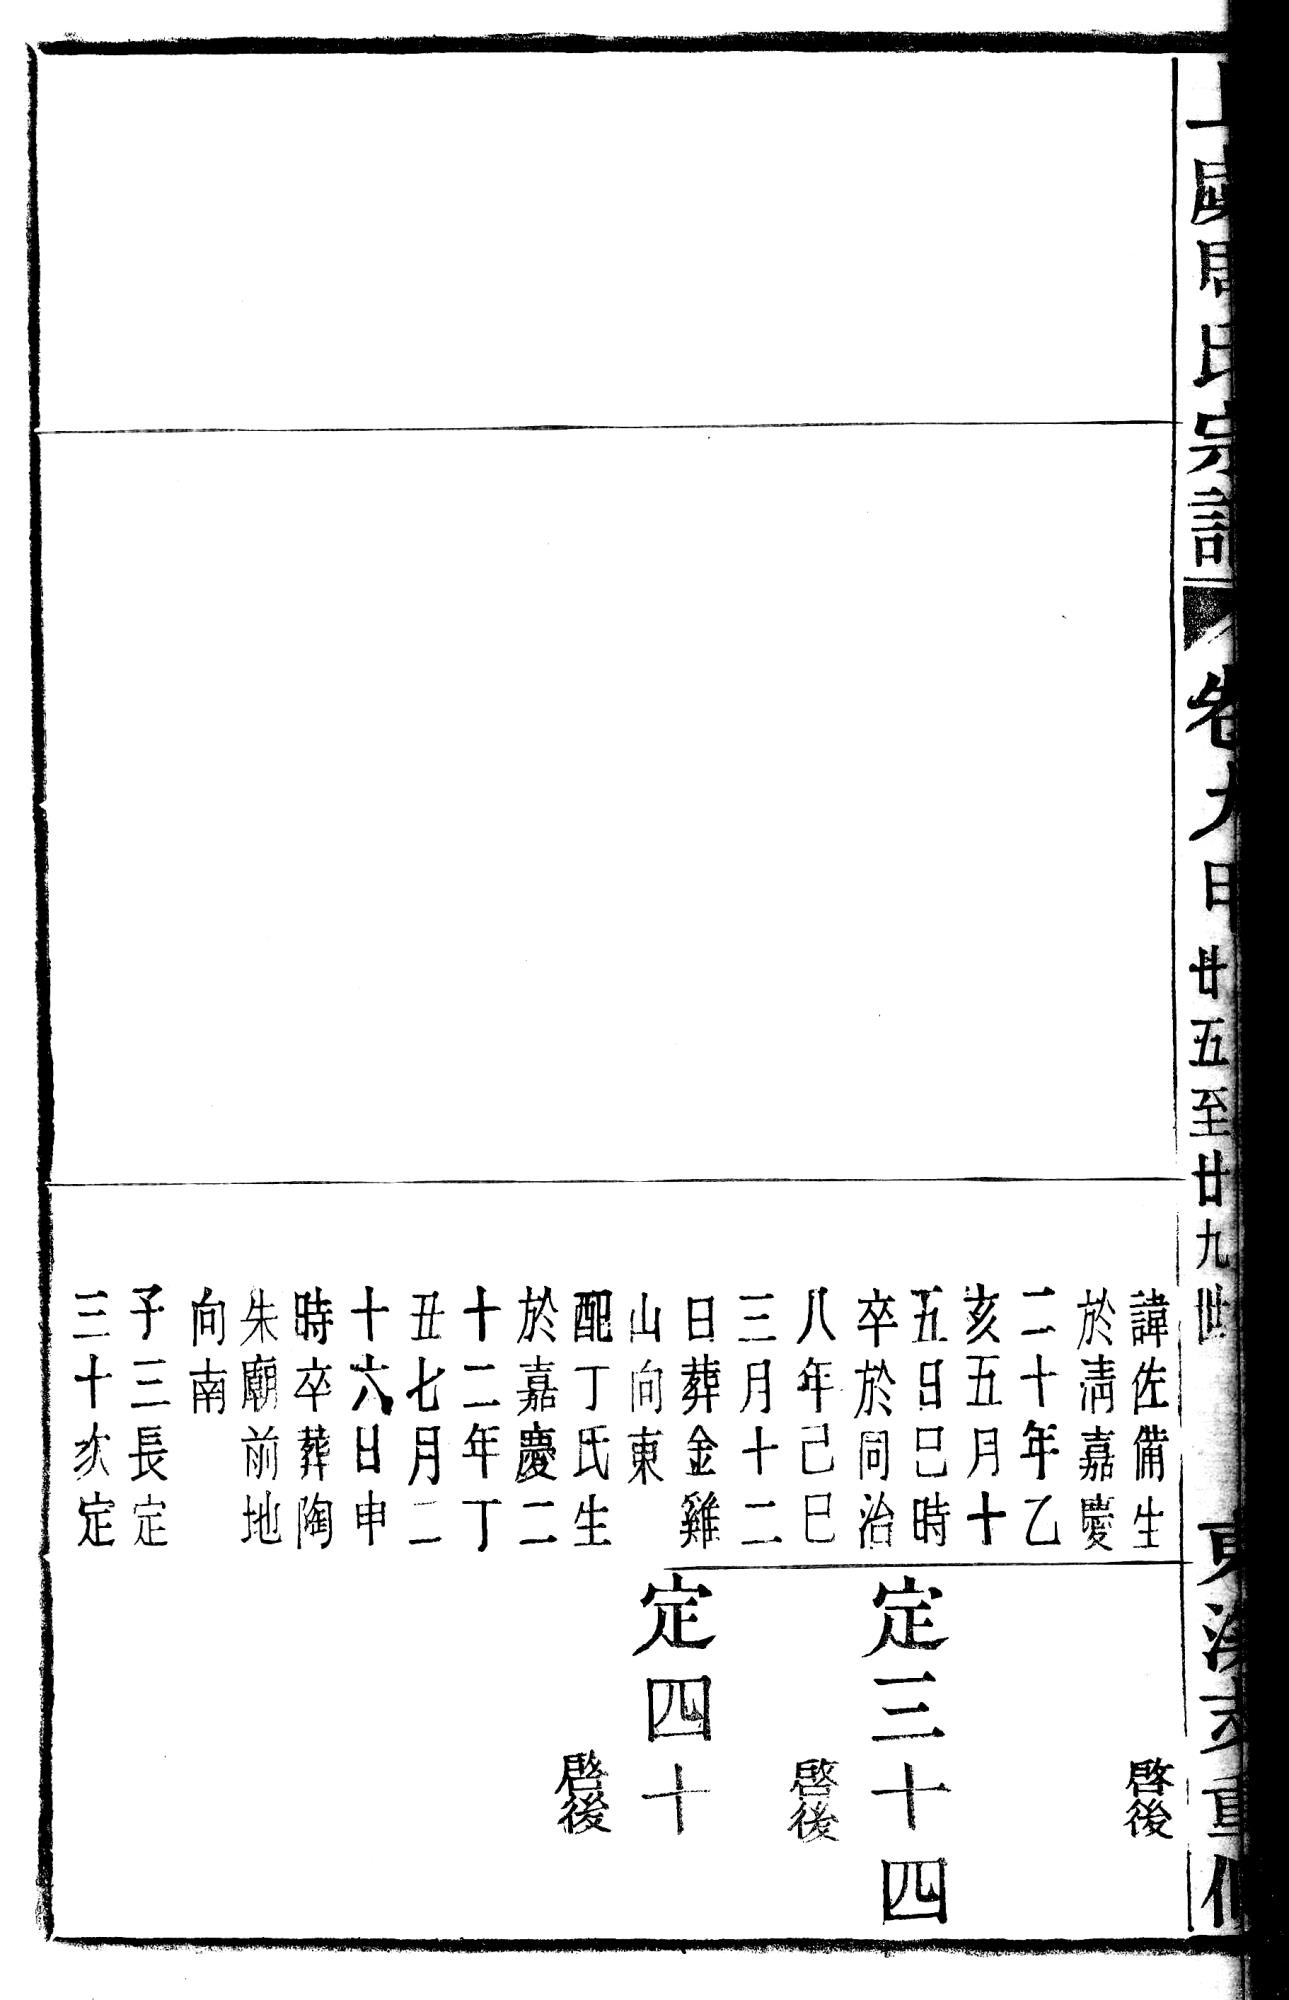 氏宗譜
卷九
廿五至廿九世
重修
諱佐備生
於清嘉慶
二十年乙
亥五月十
五日巳時
卒於同治
八年己巳
三月十二
日葬金雞
山向東
配丁氏生
於嘉慶二
十二年丁
丑七月二
十六日申
時卒葬陶
朱廟前地
向南
子三長定
三十次定
啓後
定三十四
啓後
定四十
啓後